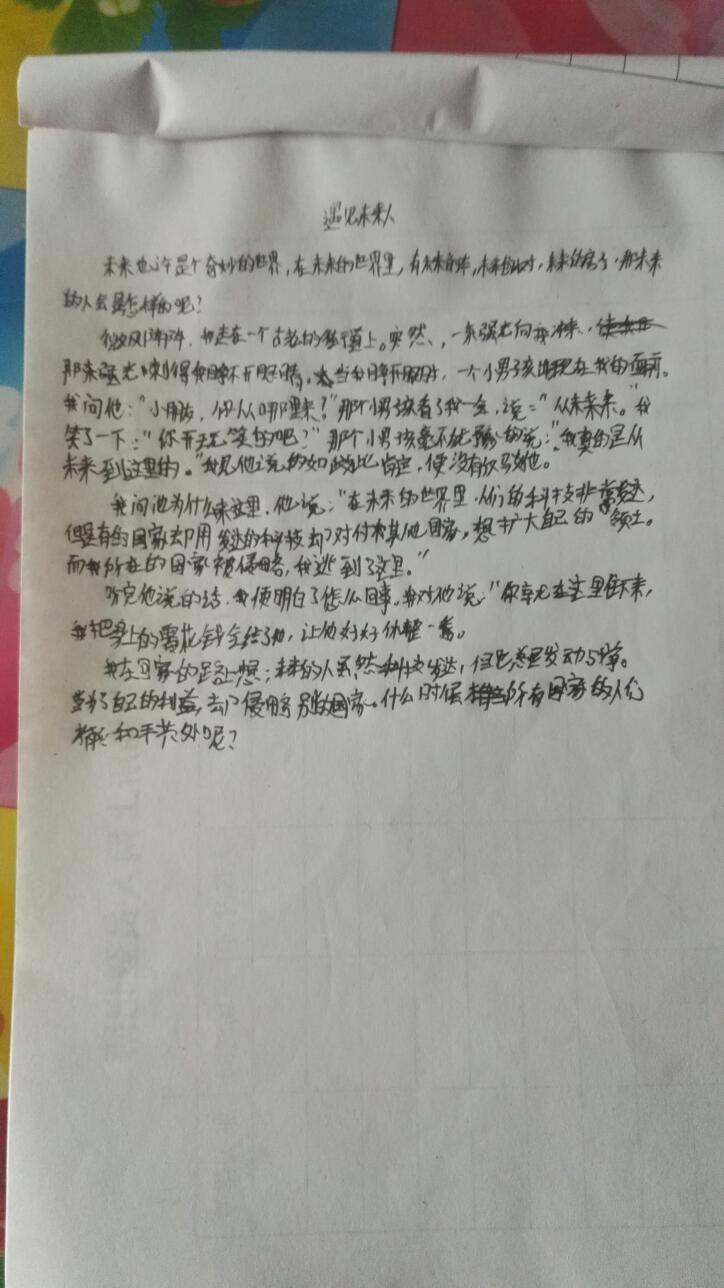 遇见未来人
未来也许是个奇妙的世界,在未来的世界里,有未来的车,未来的,未来的房子,那未来
的人会是怎样的呢?
微风阵阵,我走在一个古老的街道上。突然,一条强光向我冲来,
那束强光刺得我睁不开眼睛,当我睁开眼时,一个小男孩出现在我的面前。
我问他:“小朋友,你从哪里来?”那个小男孩看了我一会,说:“从未来来。”我
笑了一下:“你开玩笑的吧?”那个小男孩毫不犹豫的说:“我真的是从
未来到这里的。”我见他说的如此肯定,便没有反驳他。
我问他为什么来这里,他说:“在未来的世界里,人们的科技非常发达,
但是有的国家却用发达的科技去对付其他国家,想扩大自己的领土。
而我所在的国家被侵略,我逃到了这里。”
听完他说的话,我便明白了怎么回事。我对他说:“你先在这里住下来,
我把身上的零花钱全给了他,让他好好休整一番。
我在回家的路上想:未来的人虽然科技发达,但总是发动战争。
为了自己的利益,去侵略别的国家。什么时候所有国家的人们
才能和平共处呢?